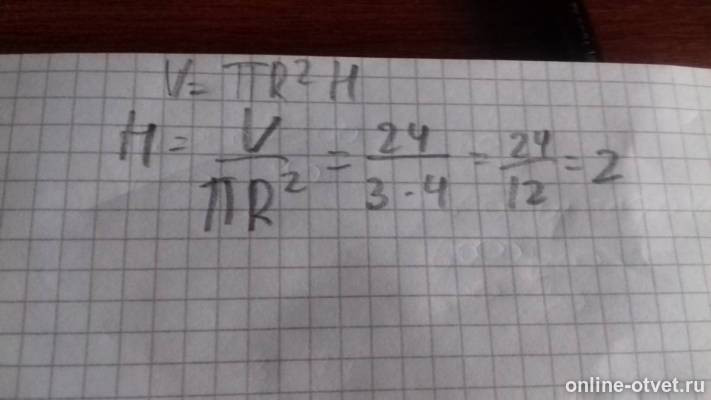 V = πR² H
H = V / πR² = 24 / 3·4 = 24 / 12 = 2
online-otvet.ru